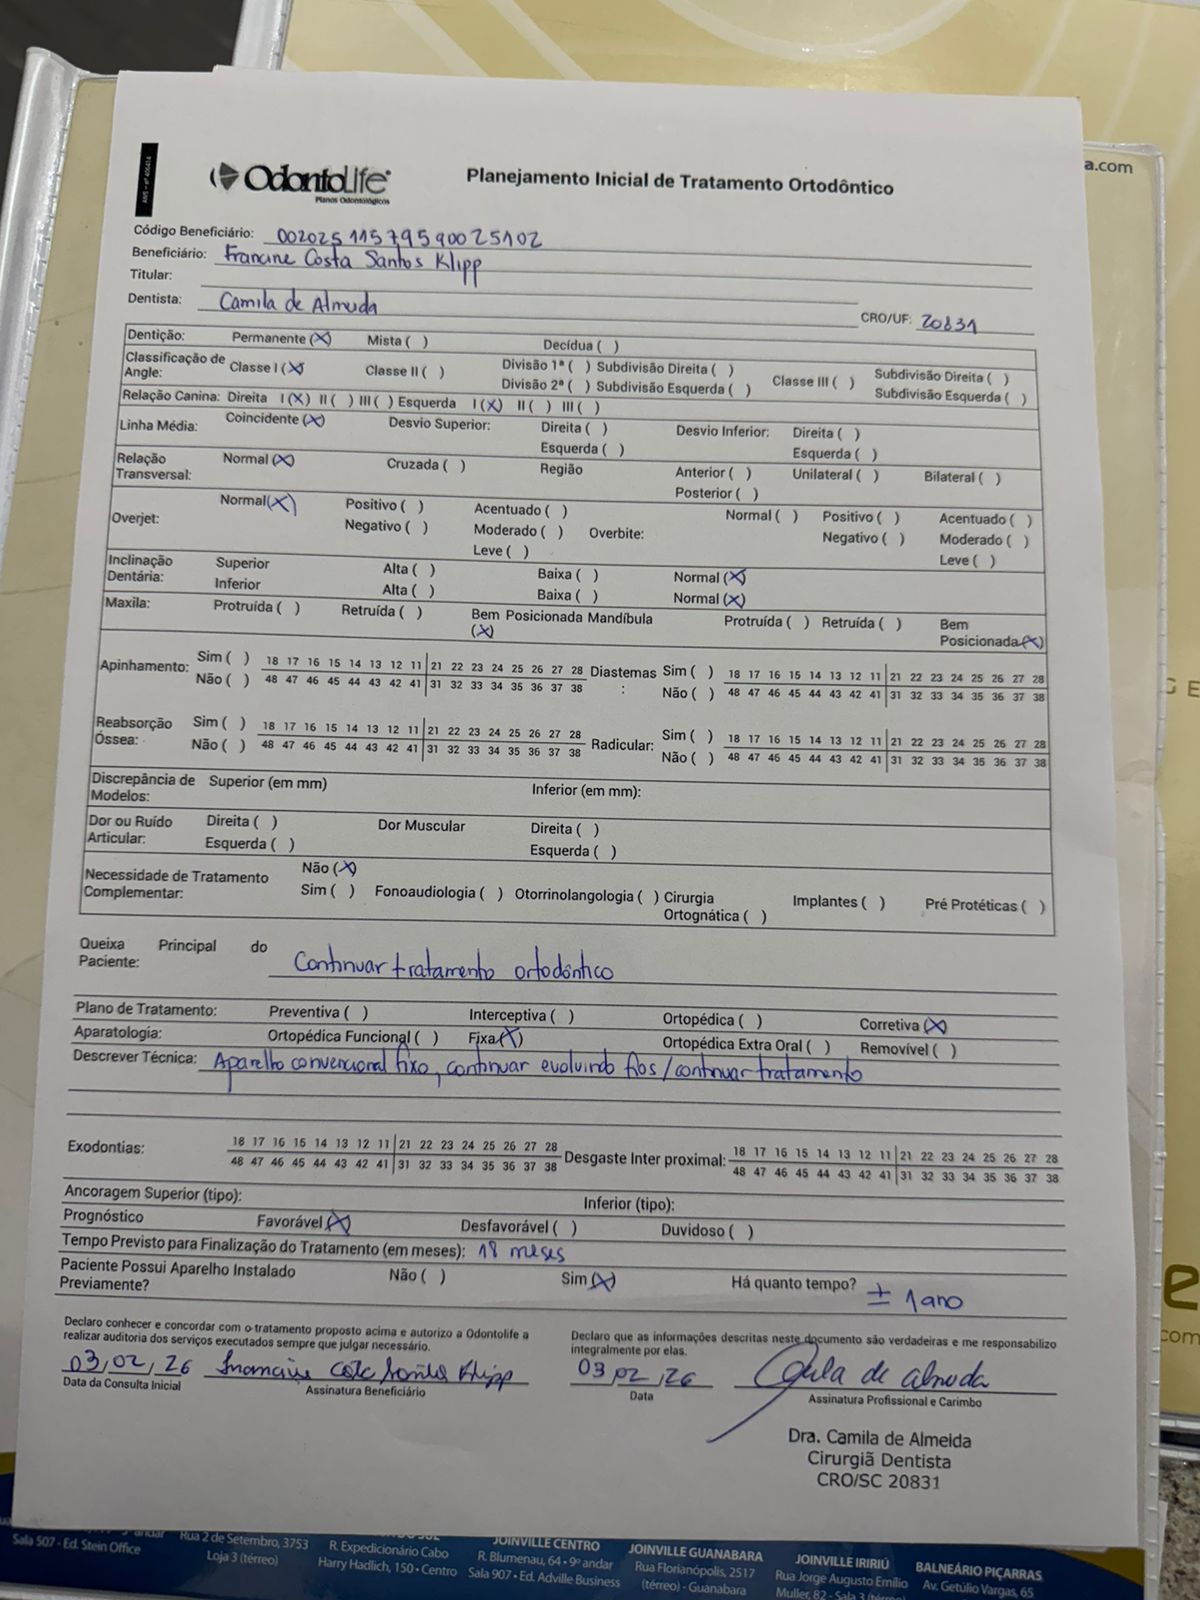 a.com
ANS - nº 406414
OdontoLife
Planos Odontológicos
Planejamento Inicial de Tratamento Ortodôntico
Código Beneficiário: 00202511579590025102
Beneficiário: Francine Costa Santos Klipp
Titular:
Dentista: Camila de Almeida CRO/UF: 20831
Dentição: Permanente (X) Mista ( ) Decídua ( )
Classificação de Angle: Classe I (X) Classe II ( ) Divisão 1ª ( ) Subdivisão Direita ( ) Classe III ( ) Subdivisão Direita ( )
Divisão 2ª ( ) Subdivisão Esquerda ( ) Subdivisão Esquerda ( )
Relação Canina: Direita I (X) II ( ) III ( ) Esquerda I (X) II ( ) III ( )
Linha Média: Coincidente (X) Desvio Superior: Direita ( ) Desvio Inferior: Direita ( )
Esquerda ( ) Esquerda ( )
Relação Transversal: Normal (X) Cruzada ( ) Região Anterior ( ) Unilateral ( ) Bilateral ( )
Posterior ( )
Overjet: Normal (X) Positivo ( ) Acentuado ( ) Overbite: Normal ( ) Positivo ( ) Acentuado ( )
Negativo ( ) Moderado ( ) Negativo ( ) Moderado ( )
Leve ( ) Leve ( )
Inclinação Dentária: Superior Alta ( ) Baixa ( ) Normal (X)
Inferior Alta ( ) Baixa ( ) Normal (X)
Maxila: Protruída ( ) Retruída ( ) Bem Posicionada (X) Mandíbula Protruída ( ) Retruída ( ) Bem Posicionada (X)
Apinhamento: Sim ( ) 18 17 16 15 14 13 12 11 21 22 23 24 25 26 27 28 Diastemas: Sim ( ) 18 17 16 15 14 13 12 11 21 22 23 24 25 26 27 28
Não ( ) 48 47 46 45 44 43 42 41 31 32 33 34 35 36 37 38 Não ( ) 48 47 46 45 44 43 42 41 31 32 33 34 35 36 37 38
Reabsorção Óssea: Sim ( ) 18 17 16 15 14 13 12 11 21 22 23 24 25 26 27 28 Radicular: Sim ( ) 18 17 16 15 14 13 12 11 21 22 23 24 25 26 27 28
Não ( ) 48 47 46 45 44 43 42 41 31 32 33 34 35 36 37 38 Não ( ) 48 47 46 45 44 43 42 41 31 32 33 34 35 36 37 38
Discrepância de Modelos: Superior (em mm) Inferior (em mm):
Dor ou Ruído Articular: Direita ( ) Dor Muscular Direita ( )
Esquerda ( ) Esquerda ( )
Necessidade de Tratamento Complementar: Não (X)
Sim ( ) Fonoaudiologia ( ) Otorrinolangologia ( ) Cirurgia Ortognática ( ) Implantes ( ) Pré Protéticas ( )
Queixa Principal do Paciente: Continuar tratamento ortodôntico
Plano de Tratamento: Preventiva ( ) Interceptiva ( ) Ortopédica ( ) Corretiva (X)
Aparatologia: Ortopédica Funcional ( ) Fixa (X) Ortopédica Extra Oral ( ) Removível ( )
Descrever Técnica: Aparelho convencional fixo, continuar evoluindo fios/continuar tratamento
Exodontias: 18 17 16 15 14 13 12 11 21 22 23 24 25 26 27 28 Desgaste Inter proximal: 18 17 16 15 14 13 12 11 21 22 23 24 25 26 27 28
48 47 46 45 44 43 42 41 31 32 33 34 35 36 37 38 48 47 46 45 44 43 42 41 31 32 33 34 35 36 37 38
Ancoragem Superior (tipo): Inferior (tipo):
Prognóstico Favorável (X) Desfavorável ( ) Duvidoso ( )
Tempo Previsto para Finalização do Tratamento (em meses): 18 meses
Paciente Possui Aparelho Instalado Previamente? Não ( ) Sim (X) Há quanto tempo? ± 1 ano
Declaro conhecer e concordar com o tratamento proposto acima e autorizo a Odontolife a
realizar auditoria dos serviços executados sempre que julgar necessário.
03/02/26
Data da Consulta Inicial Assinatura Beneficiário
Declaro que as informações descritas neste documento são verdadeiras e me responsabilizo
integralmente por elas.
03/02/26 de Almeida
Data Assinatura Profissional e Carimbo
Dra. Camila de Almeida
Cirurgiã Dentista
CRO/SC 20831
Sala 507 - Ed. Stein Office
Rua 2 de Setembro, 3753
Loja 3 (térreo)
R. Expedicionário Cabo
Harry Hadlich, 150 • Centro
JOINVILLE CENTRO
R. Blumenau, 64 • 9º andar
Sala 907 • Ed. Adville Business
JOINVILLE GUANABARA
Rua Florianópolis, 2517
(térreo) - Guanabara
JOINVILLE IRIRIÚ
Rua Jorge Augusto Emílio
Muller, 82 - Sala 3 (térreo)
BALNEÁRIO PIÇARRAS
Av. Getúlio Vargas, 65